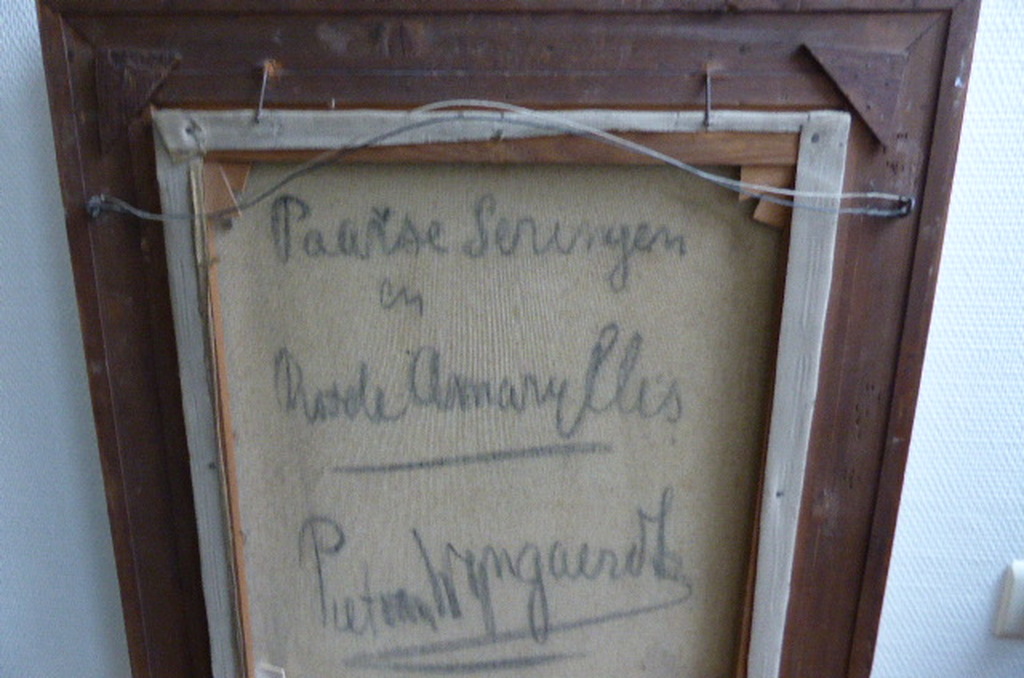 Paarse Seringen
en
Roode Amaryllis
Piet van Wyngaerdt